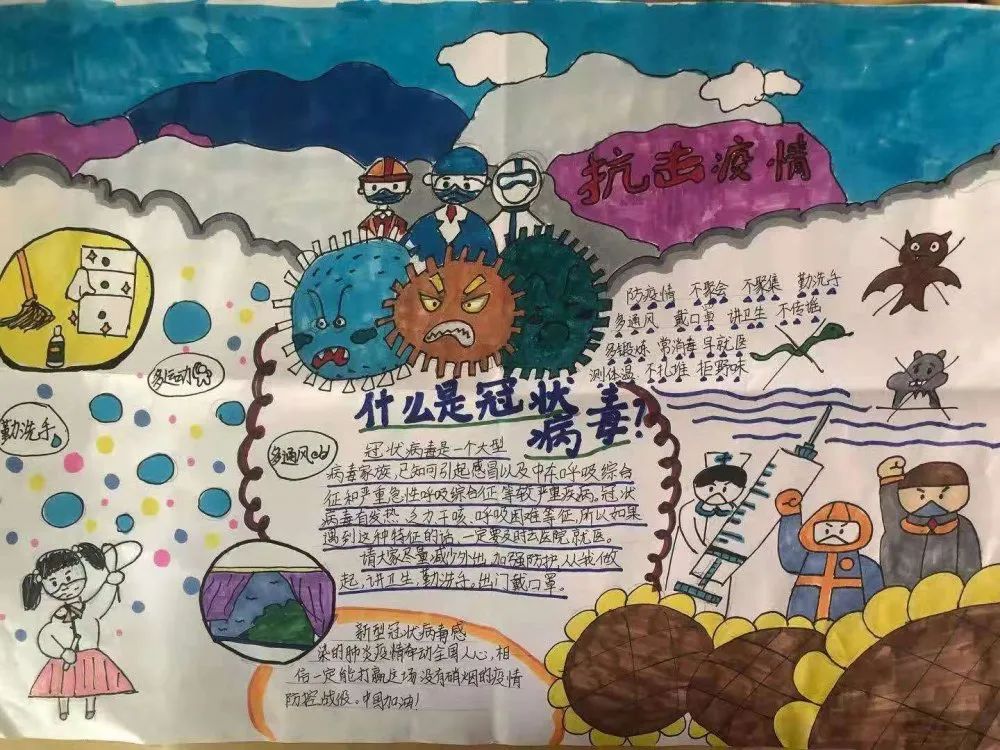 抗击疫情
防疫情 不聚会 不聚集 勤洗手
多通风 戴口罩 讲卫生 不传谣
多锻炼 常消毒 早就医
测体温 不扎堆 拒野味
多运动
勤洗手
多通风
什么是冠状
病毒?
冠状病毒是一个大型
病毒家族,已知可引起感冒以及中东呼吸综合
征和严重急性呼吸综合征等较严重疾病。冠状
病毒有发热、乏力干咳、呼吸困难等征,所以如果
遇到这种特征的话,一定要及时去医院就医。
请大家尽量减少外出,加强防护,从我做
起,讲卫生,勤洗手。出门戴口罩。
新型冠状病毒感
染的肺炎疫情牵动全国人心,相
信一定能打赢这场没有硝烟的疫情
防控战役。中国加油!